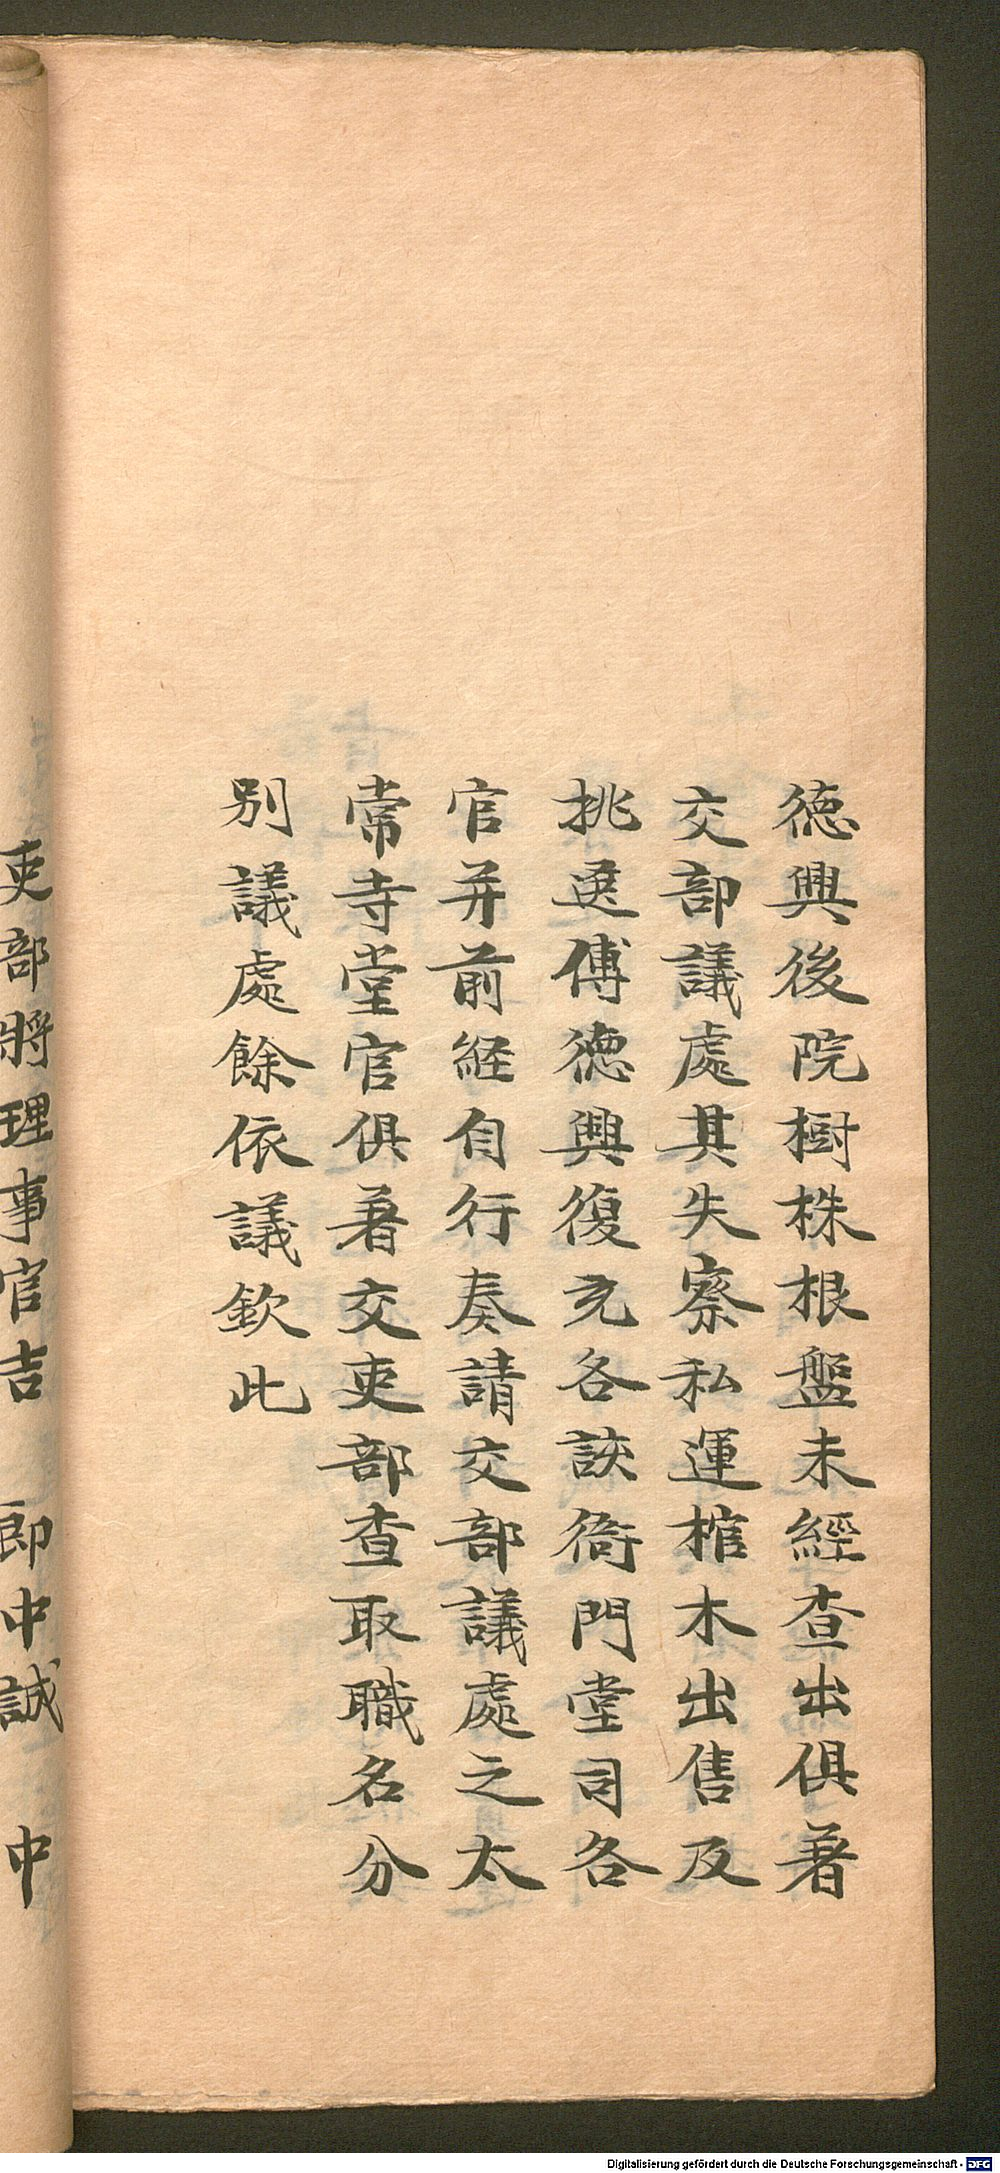 德興後院樹株根盤未經查出俱著
交部議處其失察私運棺木出售及
挑選傅德興復充各該衙門堂司各
官并前経自行奏請交部議處之太
常寺堂官俱著交吏部查取職名分
別議處餘依議欽此
吏部將理事官吉 郎中誠 中
Digitalisierung gefördert durch die Deutsche Forschungsgemeinschaft - DFG